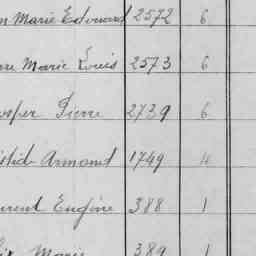 Marie Edouard 2572 6
Marie Louis 2573 6
Pierre 2739 6
Armand 1749 4
Eugène 388 1
Marie 389 1